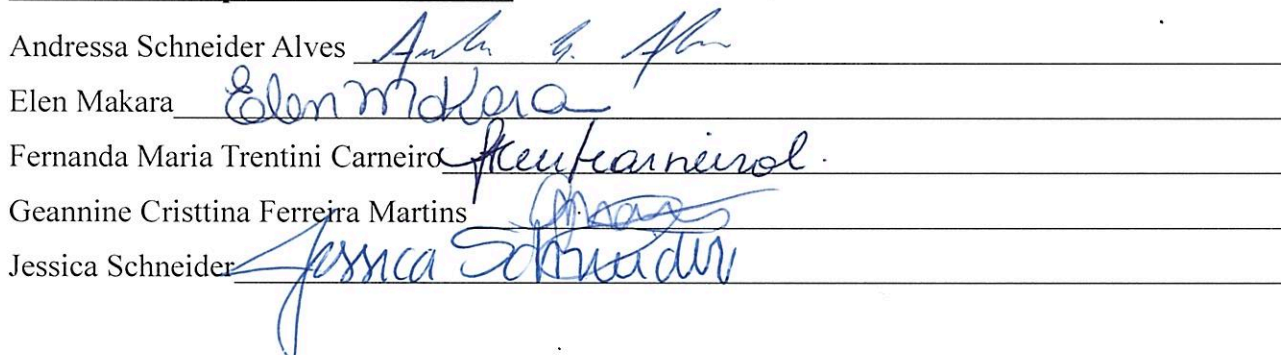 Andressa Schneider Alves
Elen Makara Elen Makara
Fernanda Maria Trentini Carneiro
Geannine Cristtina Ferreira Martins
Jessica Schneider Jessica Schneider